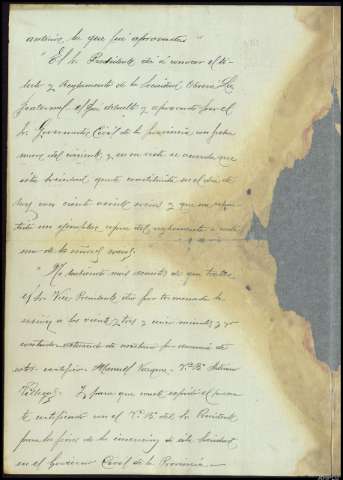 anterior, lo que fué aprobada
"El Sr. Presidente, dió á conocer el
y Reglamento de la Sociedad Obrera La
fraternal el fue devuelto y aprobado por el
Sr. Gobernador Civil de la provincia, en fecha
nueve del corriente, y, en su vista se acuerda que
esta Sociedad quede constituida en el dia de
hoy con ciento veinte socios y que se
un ejemplar, copia del reglamento á cada
uno de los señores socios.
"No habiendo mas asuntos de que tratar
el Sr. Vice Presidente, dio por terminada la
sesión a las veinte y tres y minutos y yo
de secretario por ausencia de
este certifico = Manuel Vazquez. Vº Bº
Y, para que conste, expido el presen
te certificado con el Vº Bº del Sr. Presidente
para los fines de la inscrición de esta Sociedad
en el Gobierno Civil de la Provincia =